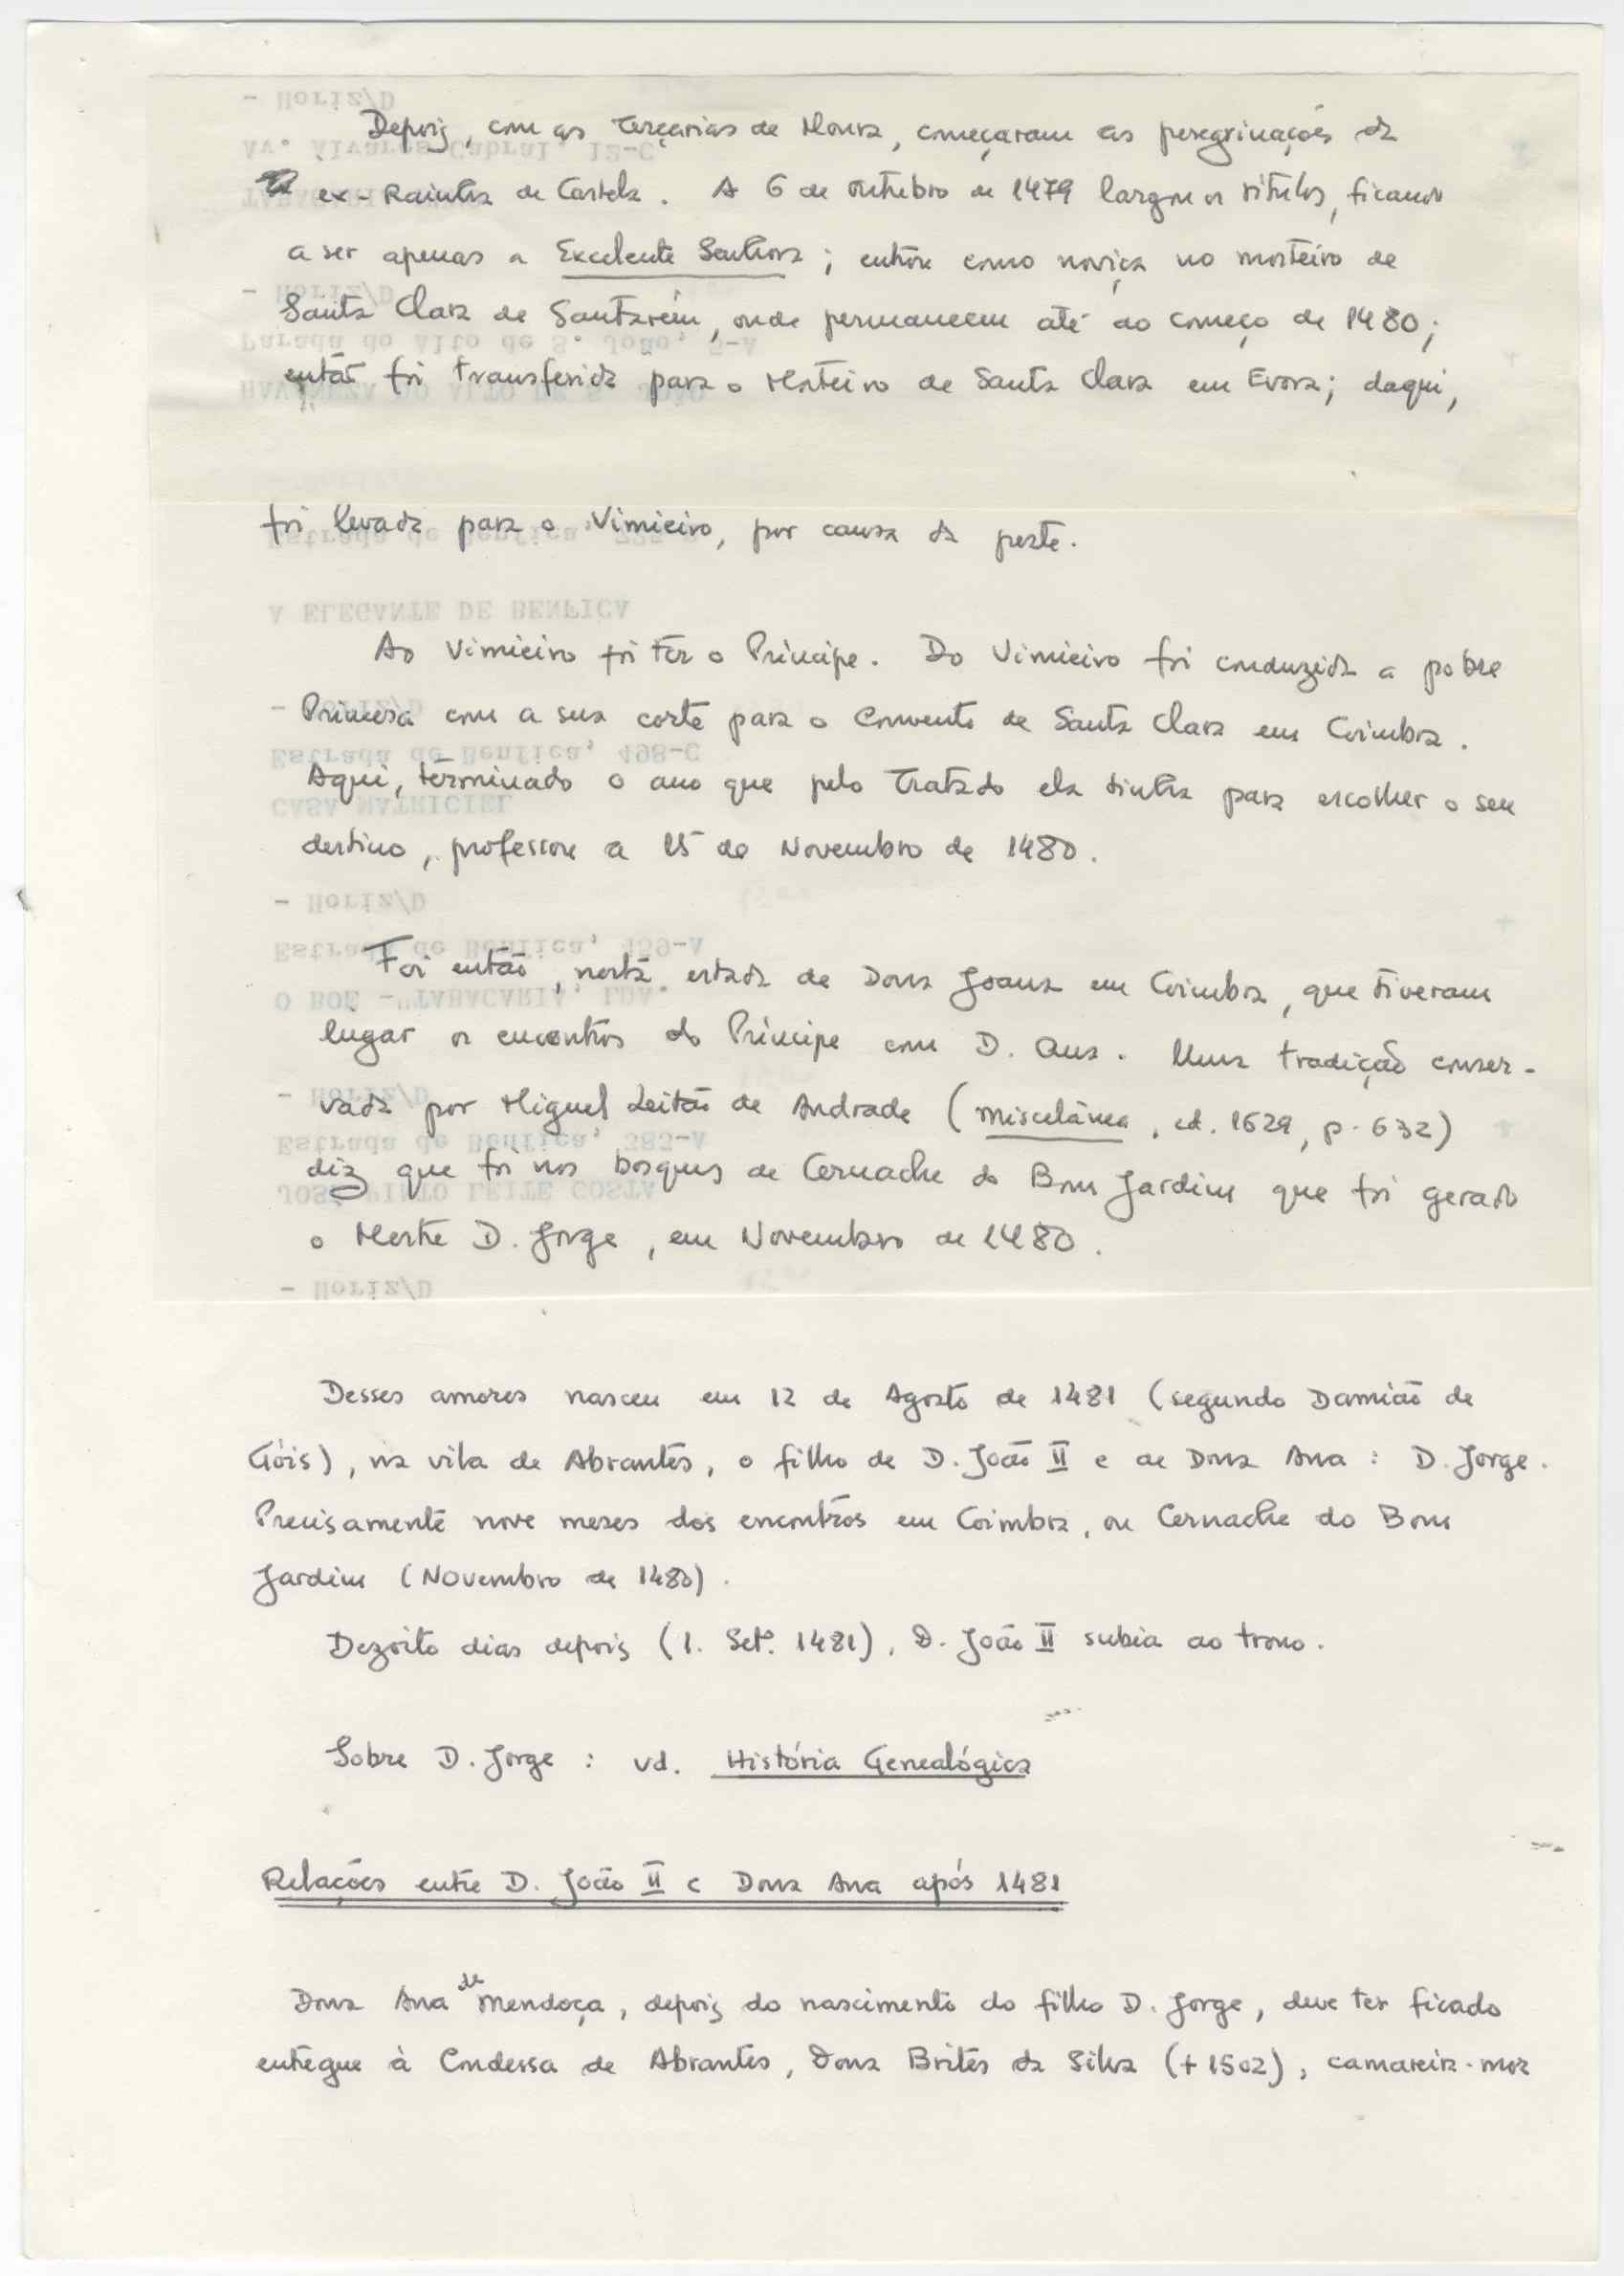 Depois, com as Terçarias de Moura, começaram as peregrinações da
ex-Rainha de Castela. A 6 de outubro de 1479 largou os títulos, ficando
a ser apenas a Excelente Senhora; entrou como noviça no mosteiro de
Santa Clara de Santarém, onde permaneceu até ao começo de 1480;
então foi transferida para o Mosteiro de Santa Clara em Evora; daqui,
foi levada para o Vimieiro, por causa da peste.
Ao Vimieiro foi ter o Príncipe. Do Vimieiro foi conduzida a pobre
Princesa com a sua corte para o Convento de Santa Clara em Coimbra.
Aqui, terminado o ano que pelo Tratado ela tinha para escolher o seu
destino, professou a 15 de Novembro de 1480.
Foi então, nesta estada de Dona Joana em Coimbra, que tiveram
lugar os encontros do Príncipe com D. Ana. Uma tradição conser-
vada por Miguel Leitão de Andrade (Miscelânea, ed. 1629, p. 632)
diz que foi nos bosques de Cernache do Bom Jardim que foi gerado
o Mestre D. Jorge, em Novembro de 1480.
Desses amores nasceu em 12 de Agosto de 1481 (segundo Damião de
Góis), na vila de Abrantes, o filho de D. João II e de Dona Ana : D. Jorge.
Precisamente nove meses dos encontros em Coimbra, ou Cernache do Bom
Jardim (Novembro de 1480).
Dezoito dias depois (1. Setº. 1481), D. João II subia ao trono.
Sobre D. Jorge : vd. História Genealógica
Relações entre D. João II e Dona Ana após 1481
Dona Ana de Mendoça, depois do nascimento do filho D. Jorge, deve ter ficado
entregue à Condessa de Abrantes, Dona Brites da Silva (+1502), camareira-mor